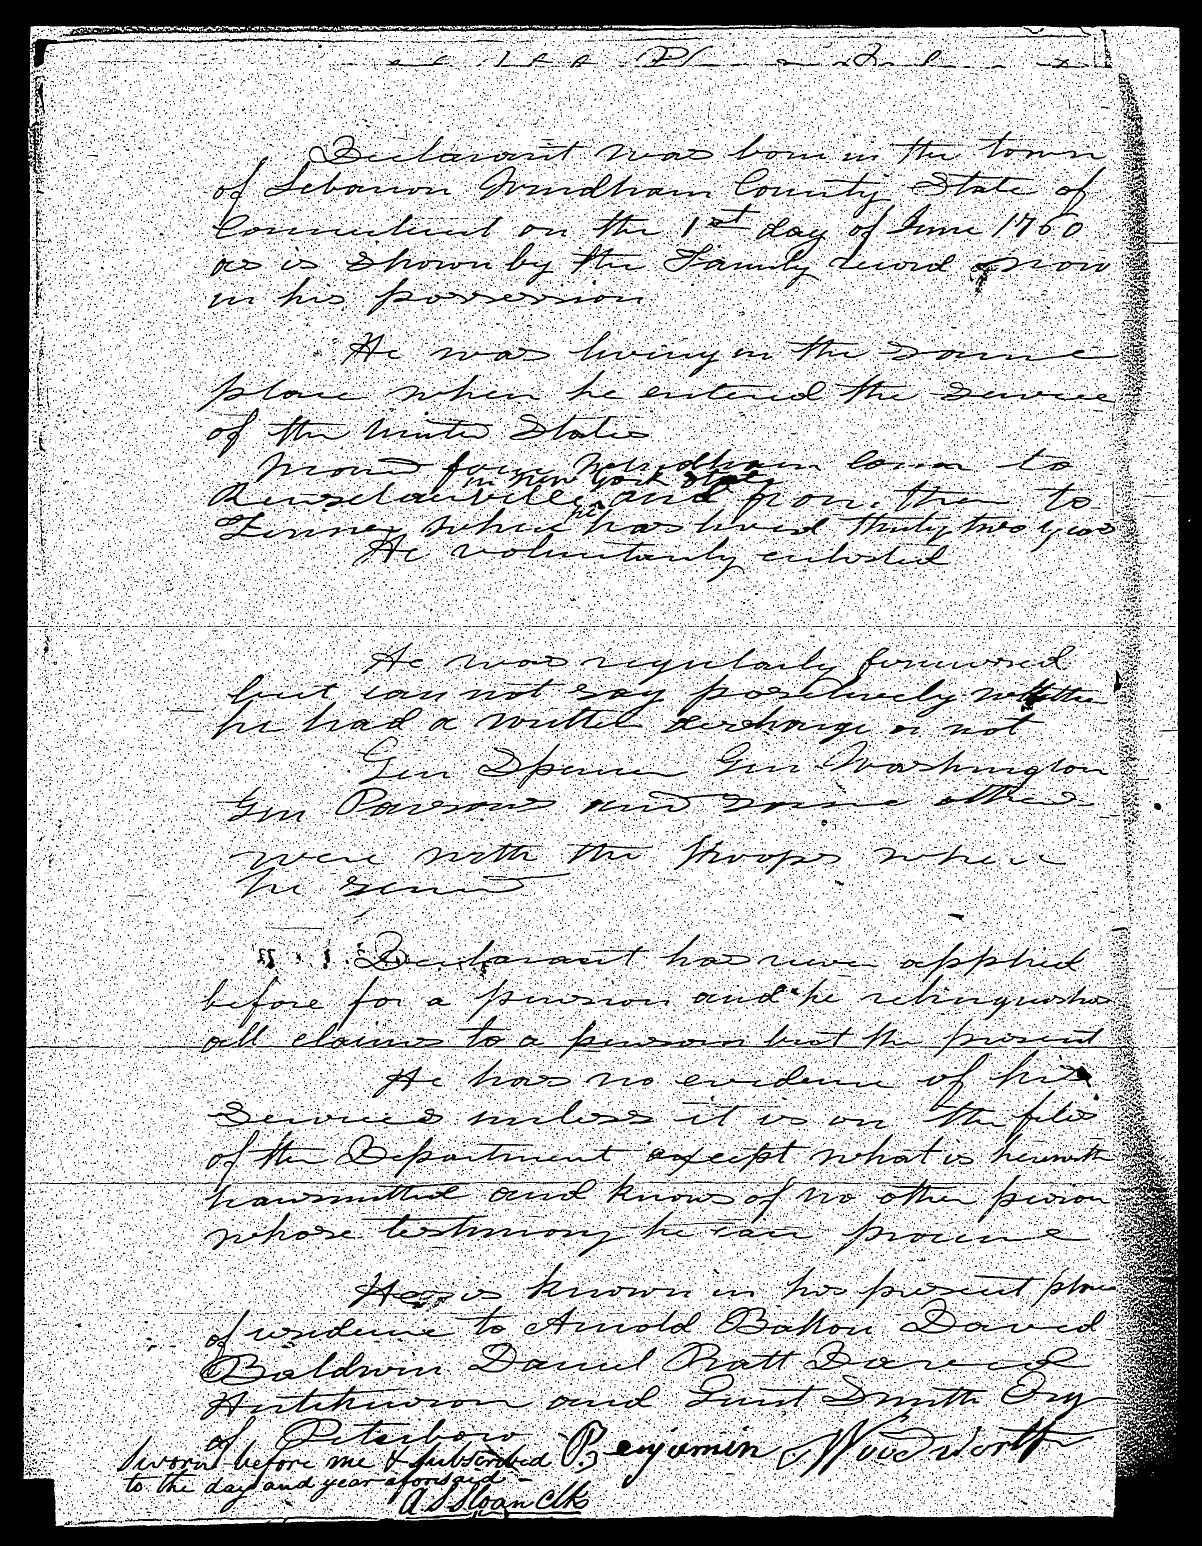 Declarant was born in the town
of Lebanon Windham County State of
Connecticut on the 1st day of June 1760
as is shown by the Family record now
in his possession
He was living in the same
place when he entered the service
of the United States
Moved from Windham Conn to
in New York State
Rensselaerville and from then to
he
Fenner where has lived thirty two years
He voluntarily enlisted
He was regularly
but can not say positively whether
he had a written discharge or not
Gen Spencer Gen Washington
Gen Parsons and some others
were with the troops where
he served
Declarant has never applied
before for a pension and he relinquishes
all claims to a pension but the present
He has no evidence of his
Services unless it is on the files
of the Department except what is herewith
transmitted and knows of no other person
whose testimony he can procure
He is known in his present place
of residence to Arnold Ballou David
Baldwin Daniel Pratt
Hutchinson and Gerrit Smith Esq
of Peterboro Benjamin Woodworth
Sworn before me & subscribed
to the day and year aforesaid -
A. S. Sloan Clk